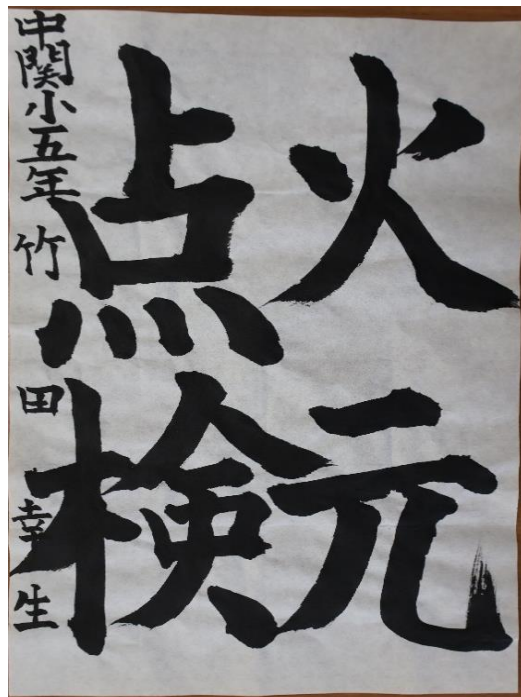 火元
点検
中関小五年 竹田幸生